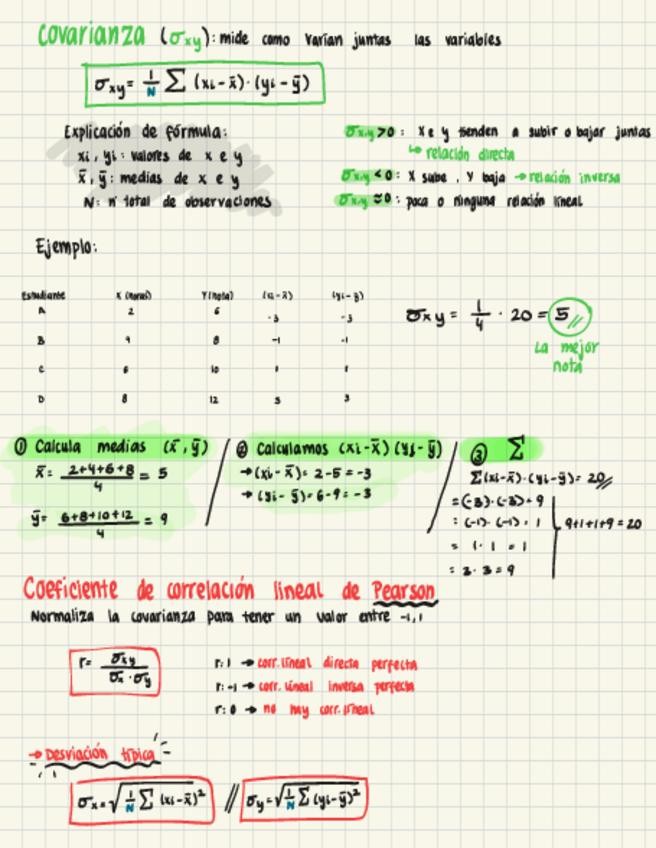 Covarianza (σxy): mide como varían juntas las variables
σxy = 1/N Σ (xi - x̄)·(yi - ȳ)
Explicación de fórmula:
xi, yi: valores de x e y
x̄, ȳ: medias de x e y
N: nº total de observaciones
σxy > 0: x e y tienden a subir o bajar juntas
↳ relación directa
σxy < 0: x sube, y baja → relación inversa
σxy ≈ 0: poca o ninguna relación lineal
Ejemplo:
Estudiante X (horas) Y (nota) (xi - x̄) (yi - ȳ)
A 2 6 -3 -3
B 4 8 -1 -1
C 6 10 1 1
D 8 12 3 3
σxy = 1/4 · 20 = 5
La mejor
nota
① Calcula medias (x̄, ȳ)
x̄ = (2+4+6+8)/4 = 5
ȳ = (6+8+10+12)/4 = 9
② Calculamos (xi - x̄)(yi - ȳ)
→ (xi - x̄) = 2-5 = -3
→ (yi - ȳ) = 6-9 = -3
③ Σ
Σ(xi - x̄)·(yi - ȳ) = 20
= (-3)·(-3) = 9
= (-1)·(-1) = 1
= 1·1 = 1
= 3·3 = 9
9+1+1+9 = 20
Coeficiente de correlación lineal de Pearson
Normaliza la covarianza para tener un valor entre -1,1
r = σxy / σx · σy
r: 1 → corr. lineal directa perfecta
r: -1 → corr. lineal inversa perfecta
r: 0 → no hay corr. lineal
→ Desviación típica
σx = √(1/N Σ (xi - x̄)²) // σy = √(1/N Σ (yi - ȳ)²)